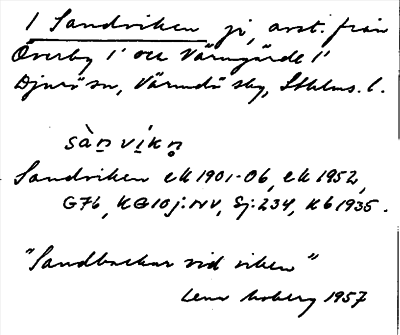 1 Sandviken gj, avst. från
Överby 1' och Värmgärde 1'
Djurö sn, Värmdö skg, Sthlms. l.
sànvikn̥
Sandviken ek 1901-06, ek 1952,
G7b, KG 10j:NV, Sj:234, Kb 1935.
"Sandbackar vid viken"
Lena Moberg 1957